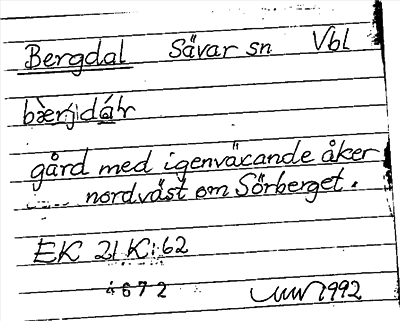 Bergdal Sävar sn Vbl
gård med igenväxande åker
nordväst om Sörberget.
EK 21 K:62
4672 1992